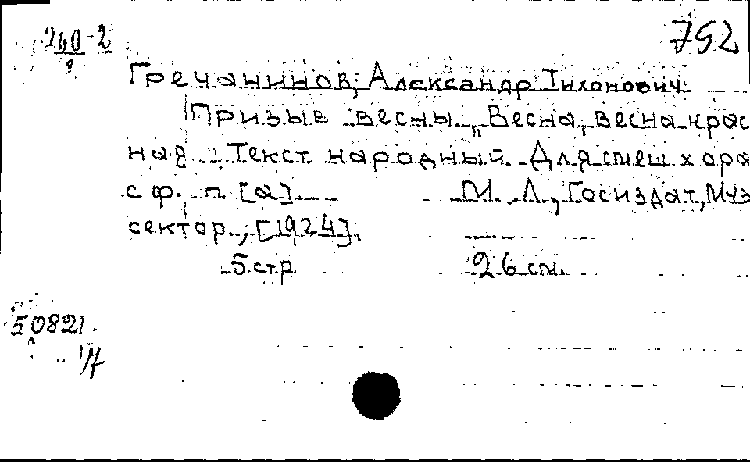 792
240-2
Гречанинов, Александр Тихонович
Призыв весны „Весна, весна крас
ная. Текст народный. Для смеш хора
с ф. п [а]. М. Л., Госиздат, Муз
сектор, [1924].
5 стр 26 см.
50821